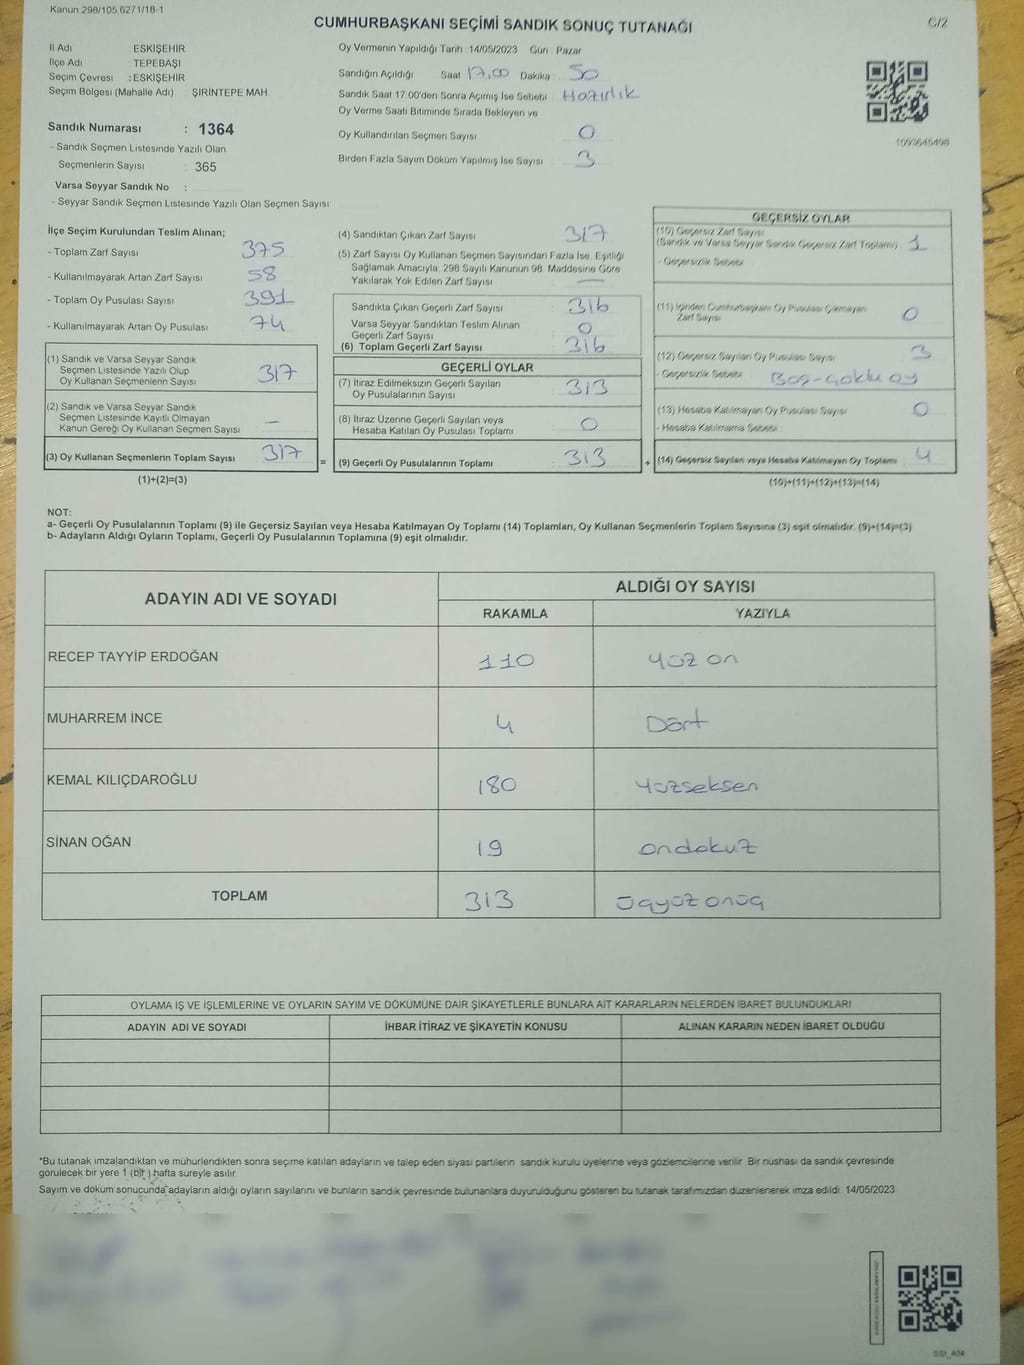 Kanun 298/105 6271/18-1
CUMHURBAŞKANI SEÇİMİ SANDIK SONUÇ TUTANAĞI
C/2
İl Adı : ESKİŞEHİR
İlçe Adı : TEPEBAŞI
Seçim Çevresi : ESKİŞEHİR
Seçim Bölgesi (Mahalle Adı) : ŞİRİNTEPE MAH.
Sandık Numarası : 1364
- Sandık Seçmen Listesinde Yazılı Olan
Seçmenlerin Sayısı : 365
Varsa Seyyar Sandık No :
- Seyyar Sandık Seçmen Listesinde Yazılı Olan Seçmen Sayısı
Oy Vermenin Yapıldığı Tarih :14/05/2023 Gün : Pazar
Sandığın Açıldığı Saat 17,00 Dakika : 50
Sandık Saat 17:00'den Sonra Açılmış İse Sebebi : Hazırlık
Oy Verme Saati Bitiminde Sırada Bekleyen ve
Oy Kullandırılan Seçmen Sayısı 0
Birden Fazla Sayım Döküm Yapılmış İse Sayısı : 3
1093645498
İlçe Seçim Kurulundan Teslim Alınan;
- Toplam Zarf Sayısı : 375
- Kullanılmayarak Artan Zarf Sayısı : 58
- Toplam Oy Pusulası Sayısı : 391
- Kullanılmayarak Artan Oy Pusulası : 74
(1) Sandık ve Varsa Seyyar Sandık
Seçmen Listesinde Yazılı Olup
Oy Kullanan Seçmenlerin Sayısı : 317
(2) Sandık ve Varsa Seyyar Sandık
Seçmen Listesinde Kayıtlı Olmayan
Kanun Gereği Oy Kullanan Seçmen Sayısı : —
(3) Oy Kullanan Seçmenlerin Toplam Sayısı : 317 =
(1)+(2)=(3)
(4) Sandıktan Çıkan Zarf Sayısı : 317
(5) Zarf Sayısı Oy Kullanan Seçmen Sayısından Fazla İse, Eşitliği
Sağlamak Amacıyla, 298 Sayılı Kanunun 98. Maddesine Göre
Yakılarak Yok Edilen Zarf Sayısı : —
Sandıkta Çıkan Geçerli Zarf Sayısı : 316
Varsa Seyyar Sandıktan Teslim Alınan
Geçerli Zarf Sayısı : 0
(6) Toplam Geçerli Zarf Sayısı : 316
GEÇERLİ OYLAR
(7) İtiraz Edilmeksizin Geçerli Sayılan
Oy Pusulalarının Sayısı : 313
(8) İtiraz Üzerine Geçerli Sayılan veya
Hesaba Katılan Oy Pusulası Toplamı : 0
(9) Geçerli Oy Pusulalarının Toplamı : 313 +
GEÇERSİZ OYLAR
(10) Geçersiz Zarf Sayısı
(Sandık ve Varsa Seyyar Sandık Geçersiz Zarf Toplamı) : 1
- Geçersizlik Sebebi :
(11) İçinden Cumhurbaşkanı Oy Pusulası Çıkmayan
Zarf Sayısı : 0
(12) Geçersiz Sayılan Oy Pusulası Sayısı : 3
- Geçersizlik Sebebi : Boş-çoklu oy
(13) Hesaba Katılmayan Oy Pusulası Sayısı : 0
- Hesaba Katılmama Sebebi :
(14) Geçersiz Sayılan veya Hesaba Katılmayan Oy Toplamı : 4
(10)+(11)+(12)+(13)=(14)
NOT:
a- Geçerli Oy Pusulalarının Toplamı (9) ile Geçersiz Sayılan veya Hesaba Katılmayan Oy Toplamı (14) Toplamları, Oy Kullanan Seçmenlerin Toplam Sayısına (3) eşit olmalıdır. (9)+(14)=(3)
b- Adayların Aldığı Oyların Toplamı, Geçerli Oy Pusulalarının Toplamına (9) eşit olmalıdır.
ADAYIN ADI VE SOYADI
ALDIĞI OY SAYISI
RAKAMLA YAZIYLA
RECEP TAYYİP ERDOĞAN 110 yüz on
MUHARREM İNCE 4 Dört
KEMAL KILIÇDAROĞLU 180 yüzseksen
SİNAN OĞAN 19 ondokuz
TOPLAM 313 üçyüz onüç
OYLAMA İŞ VE İŞLEMLERİNE VE OYLARIN SAYIM VE DÖKÜMÜNE DAİR ŞİKAYETLERLE BUNLARA AİT KARARLARIN NELERDEN İBARET BULUNDUKLARI
ADAYIN ADI VE SOYADI İHBAR İTİRAZ VE ŞİKAYETİN KONUSU ALINAN KARARIN NEDEN İBARET OLDUĞU
*Bu tutanak imzalandıktan ve mühürlendikten sonra seçime katılan adayların ve talep eden siyasi partilerin sandık kurulu üyelerine veya gözlemcilerine verilir. Bir nüshası da sandık çevresinde
görülecek bir yere 1 (bir) hafta süreyle asılır.
Sayım ve döküm sonucunda adayların aldığı oyların sayılarını ve bunların sandık çevresinde bulunanlara duyurulduğunu gösteren bu tutanak tarafımızdan düzenlenerek imza edildi. 14/05/2023
SSt_404